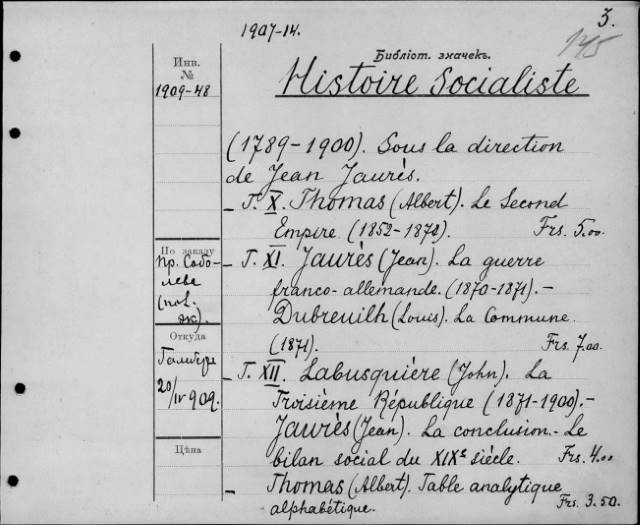 3.
1907-14.
145
Инв.
№
1909-48
Библіот. значекъ.
Histoire Socialiste
(1789-1900). Sous la direction
de Jean Jaurès.
- T. X. Thomas (Albert). Le Second
Empire (1852-1870). Frs. 5.00.
По заказу
Пр. Собо-
лева
(пол.
эк).
- T. XI. Jaurès (Jean). La guerre
franco-allemande. (1870-1871). -
Dubreuilh (Louis). La Commune.
(1871). Frs. 7.00.
Откуда
20/IV 909.
- T. XII. Labusquière (John). La
Troisième République (1871-1900). -
Jaurès (Jean). La conclusion. - Le
bilan social du XIXe siècle. Frs. 4.00
Цѣна
- Thomas (Albert). Table analytique
alphabétique. Frs. 3.50.